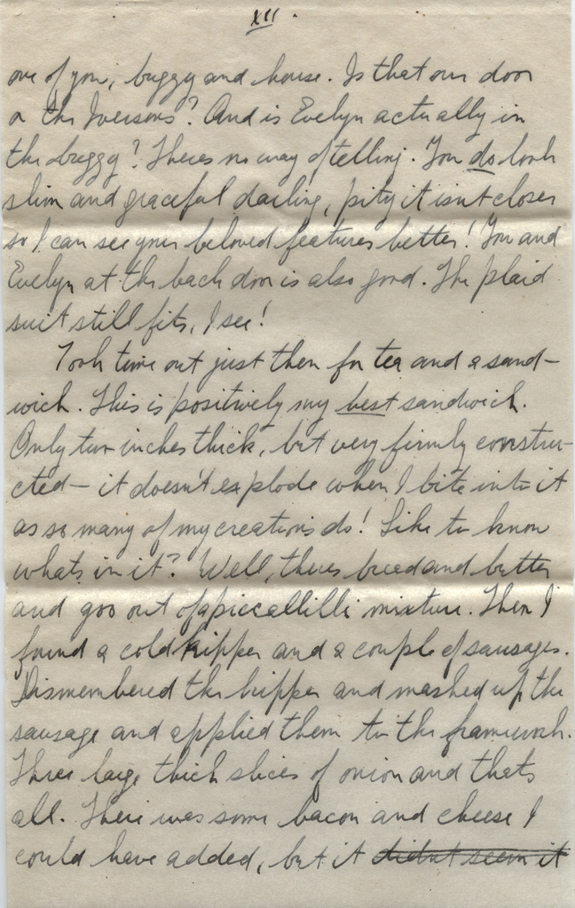 XII.
one of you, buggy and house. Is that our door
or the Iversons? And is Evelyn actually in
the buggy? Theres no way of telling. You do look
slim and graceful darling, pity it isnt closer
so I can see your beloved features better! You and
Evelyn at the back door is also good. The plaid
suit still fits, I see!
Took time out just then for tea and a sand-
wich. This is positively my best sandwich.
Only two inches thick, but very firmly constru-
cted— it doesn't explode when I bite into it
as so many of my creations do! Like to know
whats in it? Well, theres bread and butter
and goo out of a piccallilli mixture. Then I
found a cold kipper and a couple of sausages.
Dismembered the kipper and mashed up the
sausage and applied them to the framework.
Three large thick slices of onion and thats
all. There was some bacon and cheese I
could have added, but it didnt seem it